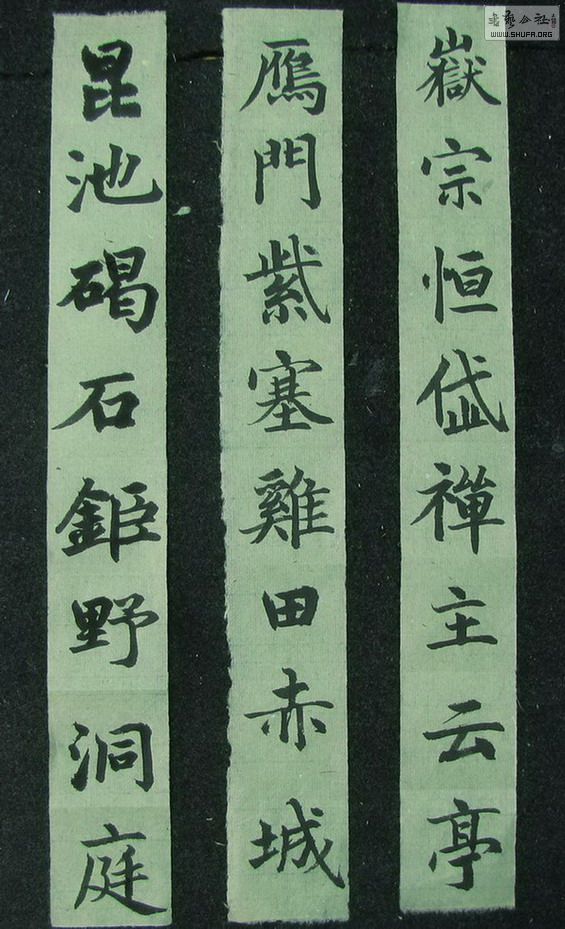 嶽宗恒岱禪主云亭
鴈門紫塞雞田赤城
昆池碣石鉅野洞庭
WWW.SHUFA.ORG